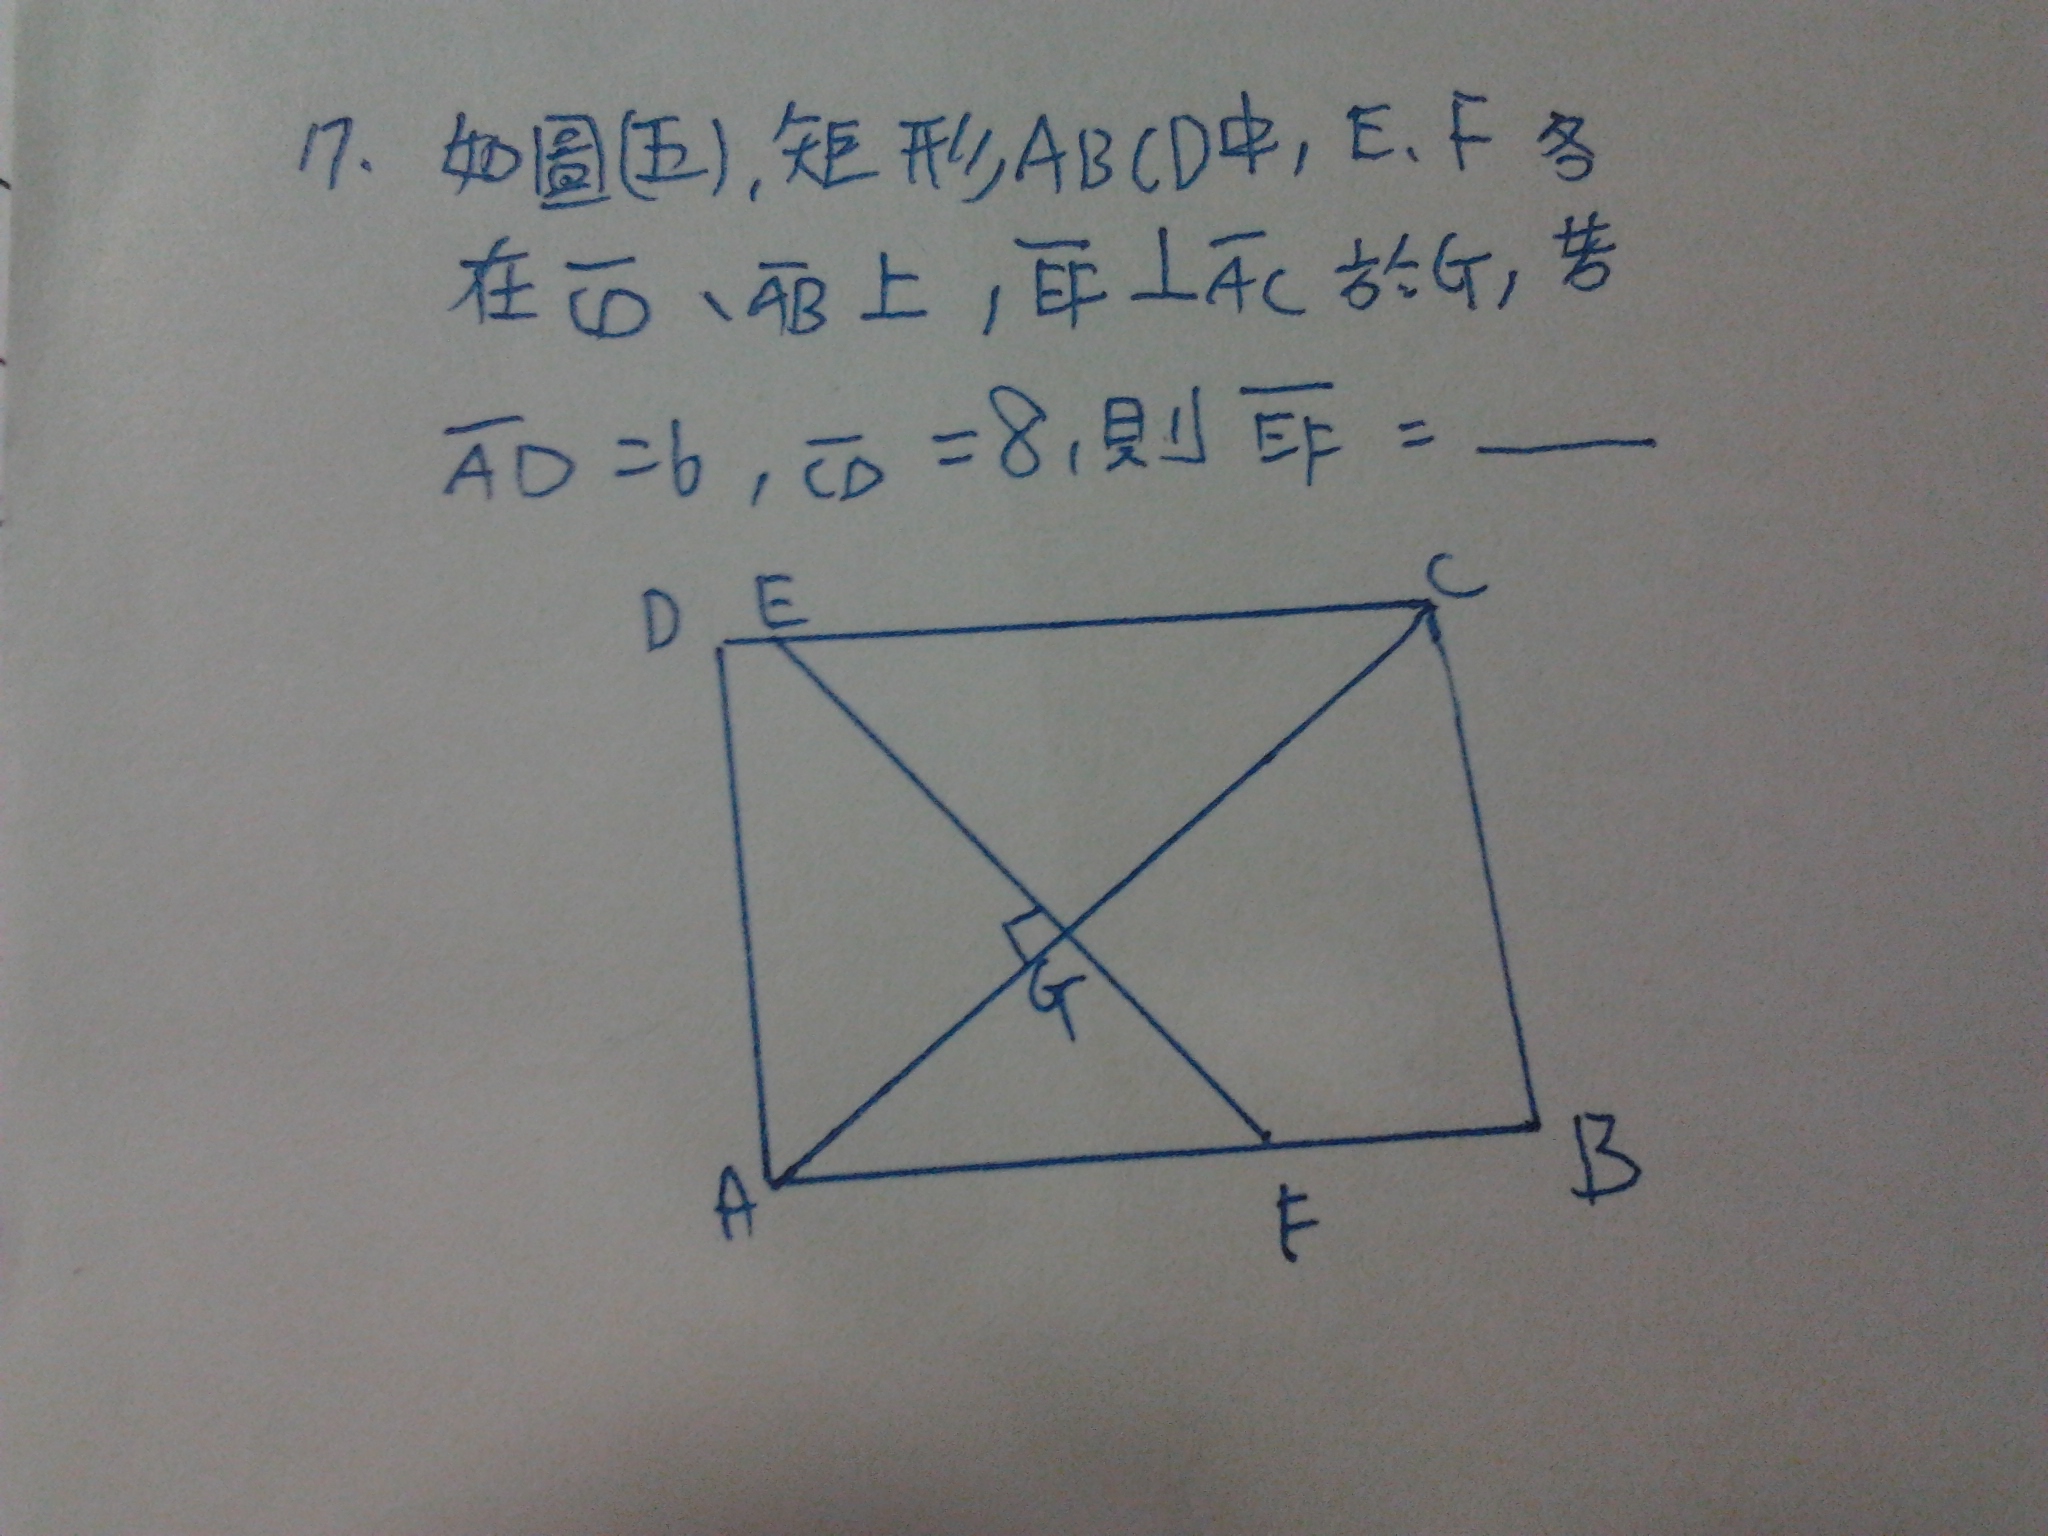 17. 如圖(五),矩形ABCD中, E、F各
在CD、AB上, EF⊥AC於G, 若
AD=6, CD=8,則EF=____
D E C
G
A F B